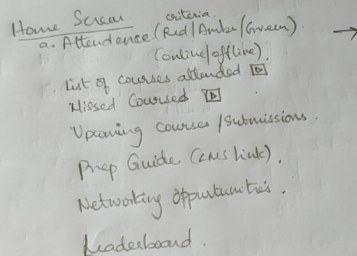 Home Screen
criteria.
a. Attendence (Red/Amber/Green).
(online/offline).
List of courses attended
Missed Coursed
Upcoming courses/submissions.
Prep Guide (LMS link).
Networking Oppurtunities.
Leaderboard.